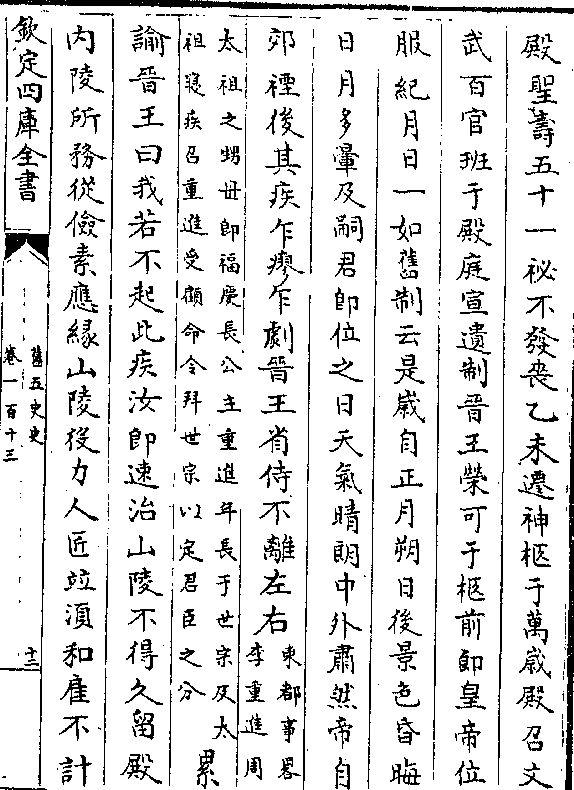 殿聖壽五十一祕不發喪乙未遷神柩于萬歲殿召文
武百官班于殿庭宣遺制晉王榮可于柩前即皇帝位
服紀月日一如舊制云是歲自正月朔日後景色昏晦
日月多暈及嗣君即位之日天氣晴朗中外肅然帝自
郊禋後其疾乍瘳乍劇晉王省侍不離左右東都事畧
李重進周
太祖之甥母即福慶長公主重進年長于世宗及太
祖寢疾召重進受顧命令拜世宗以定君臣之分累
諭晉王曰我若不起此疾汝即速治山陵不得久留殿
内陵所務從儉素應緣山陵役力人匠竝須和雇不計
欽定四庫全書
舊五史史
卷一百十三
十三